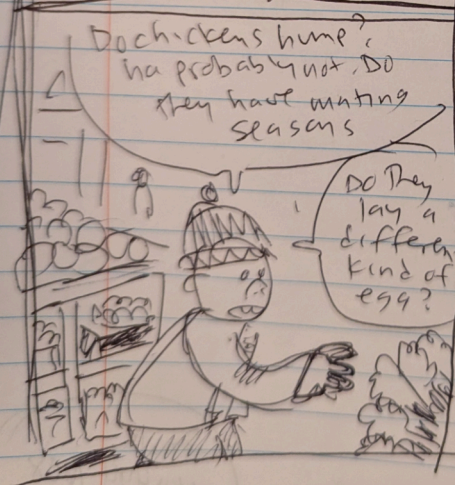 Do chickens hump?
ha probably not. Do
they have mating
seasons
Do They
lay a
differen
kind of
egg?